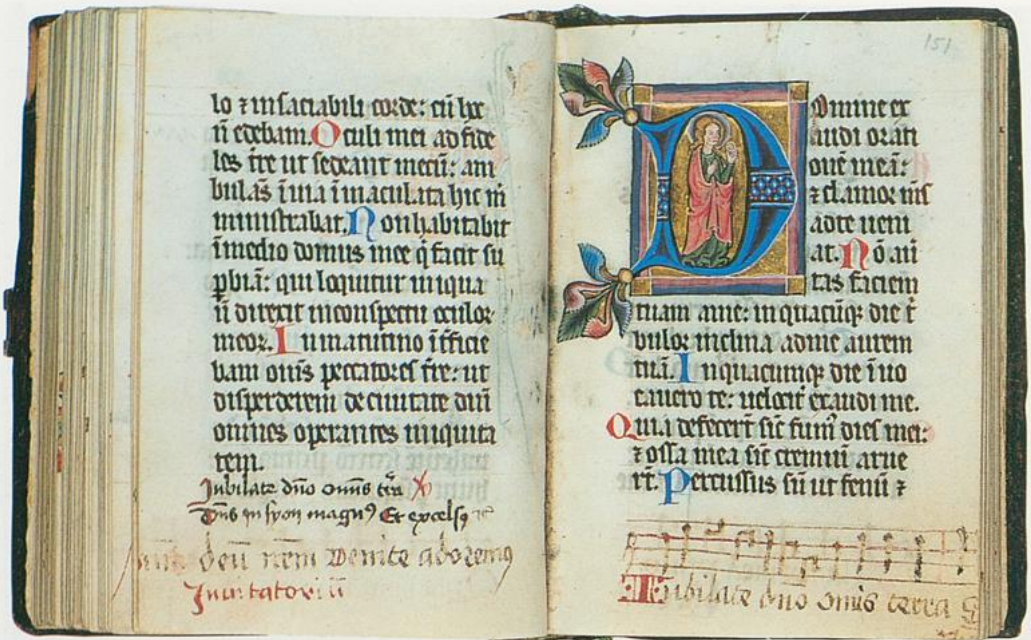 lo ⁊ insaciabili corde: cū hoc
ñ edebam. Oculi mei ad fide
les tr̄e ut sedeant mecū: am
bulās ī uia īmaculata hic m̄
ministrabat. Non habitabit
ī medio domus mee q̄ facit su
ꝑbiā: qui loquitur iniqua
ñ direxit in conspectu oculoꝝ
meoꝝ. In matutino īt̄ficie
bam om̄s peccatores tr̄e: ut
disperderem de ciuitate dn̄i
omnes operantes iniquita
tem.
Jubilate dn̄o omīs t̄ra
Dn̄s in syon magnꝰ Et excelsꝰ
deū nr̄m Venite adoremꝰ
Inuitatoriū
151
Domine ex
audi orati
onē meā:
⁊ clamor mꝰs
ad te ueni
at. Nō auer
tas faciem
tuam a me: in quacūqꝫ die t̄
bulor inclina ad me aurem
tuā. In quacumqꝫ die īuo
cauero te: uelocit̄ exaudi me.
Quia defecer̄t sic̄ fumꝰ dies mei:
⁊ ossa mea sic̄ cremiū arue
r̄t. Percussus sū ut fenū ⁊
Iubilate dn̄o omīs terra